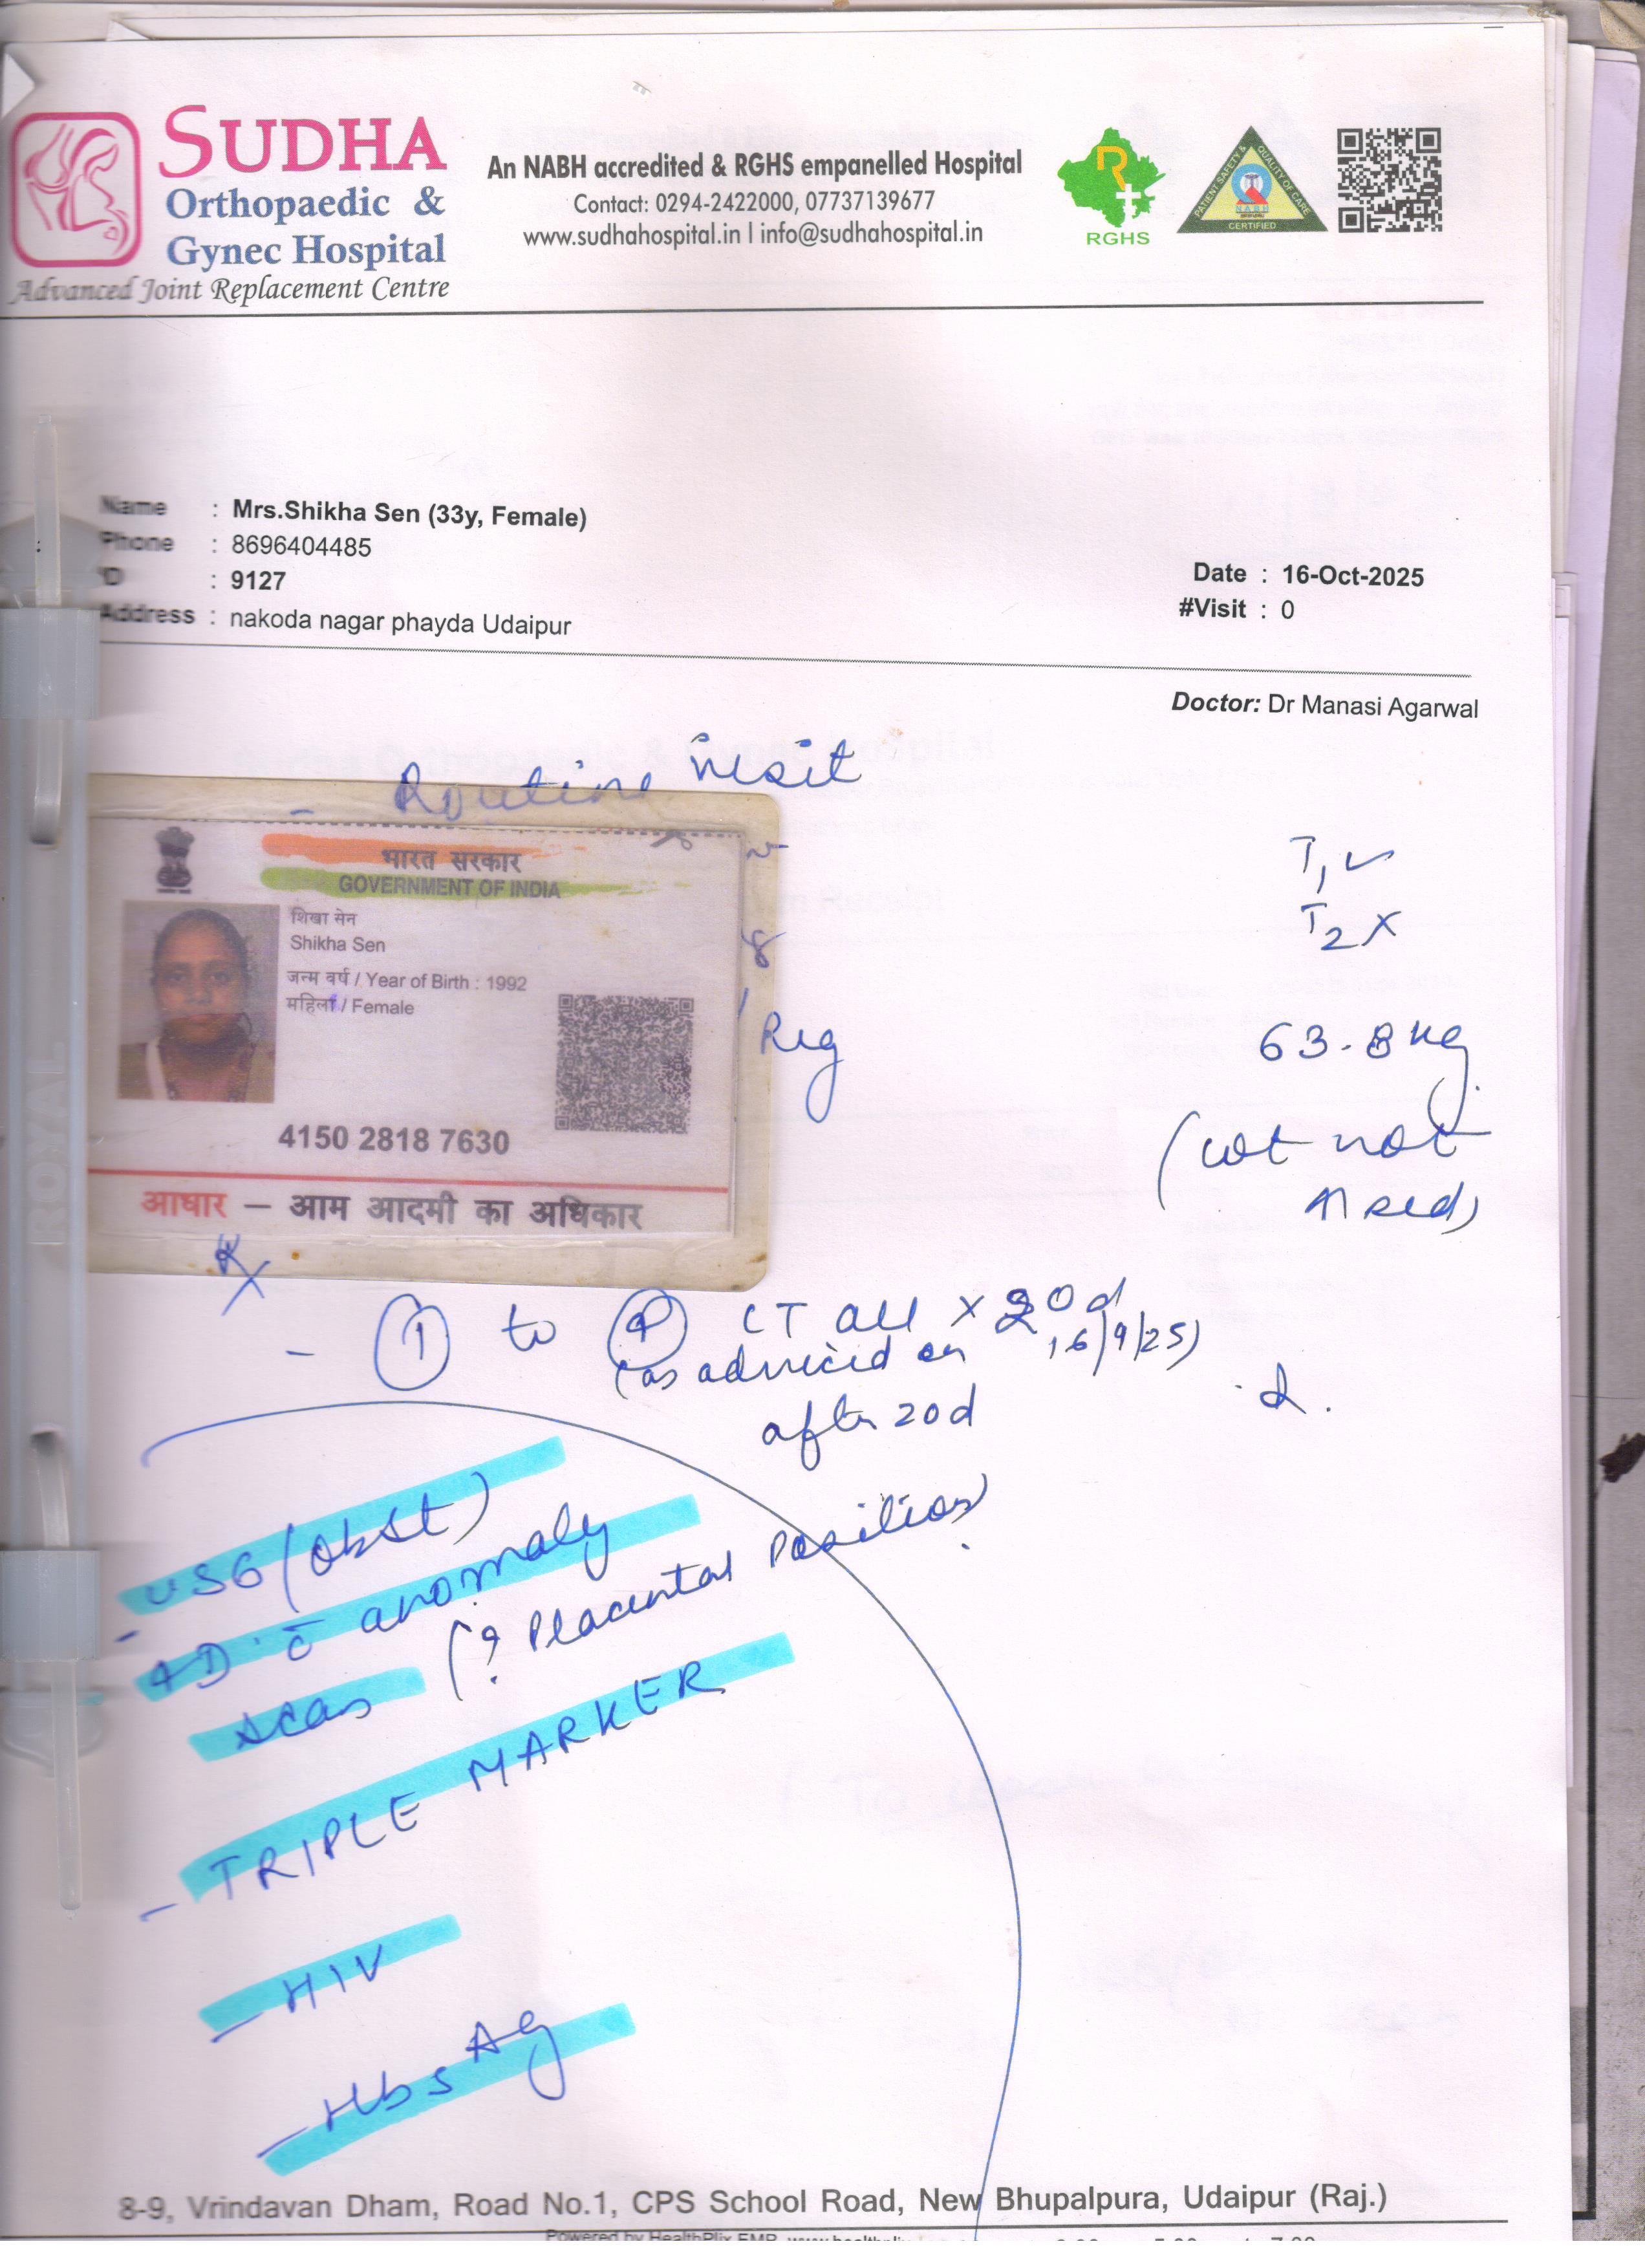 SUDHA
Orthopaedic &
Gynec Hospital
Advanced Joint Replacement Centre
An NABH accredited & RGHS empanelled Hospital
Contact: 0294-2422000, 07737139677
www.sudhahospital.in | info@sudhahospital.in
RGHS
PATIENT SAFETY & QUALITY OF CARE
NABH
CERTIFIED
Name : Mrs.Shikha Sen (33y, Female)
Phone : 8696404485
ID : 9127
Address : nakoda nagar phayda Udaipur
Date : 16-Oct-2025
#Visit : 0
Doctor: Dr Manasi Agarwal
- Routine visit
भारत सरकार
GOVERNMENT OF INDIA
शिखा सेन
Shikha Sen
जन्म वर्ष / Year of Birth : 1992
महिला / Female
4150 2818 7630
आधार – आम आदमी का अधिकार
T1 ✓
T2 X
63.8 kg
(wt not
Rx
- ① to ④ CT all x 20d
(as adviced on 16/9/25)
after 20d
- USG (Obst)
4D c̄ anomaly
scan (? Placental Position)
- TRIPLE MARKER
- HIV
- HbsAg
ROYAL
8-9, Vrindavan Dham, Road No.1, CPS School Road, New Bhupalpura, Udaipur (Raj.)
Powered by HealthPlix EMR.